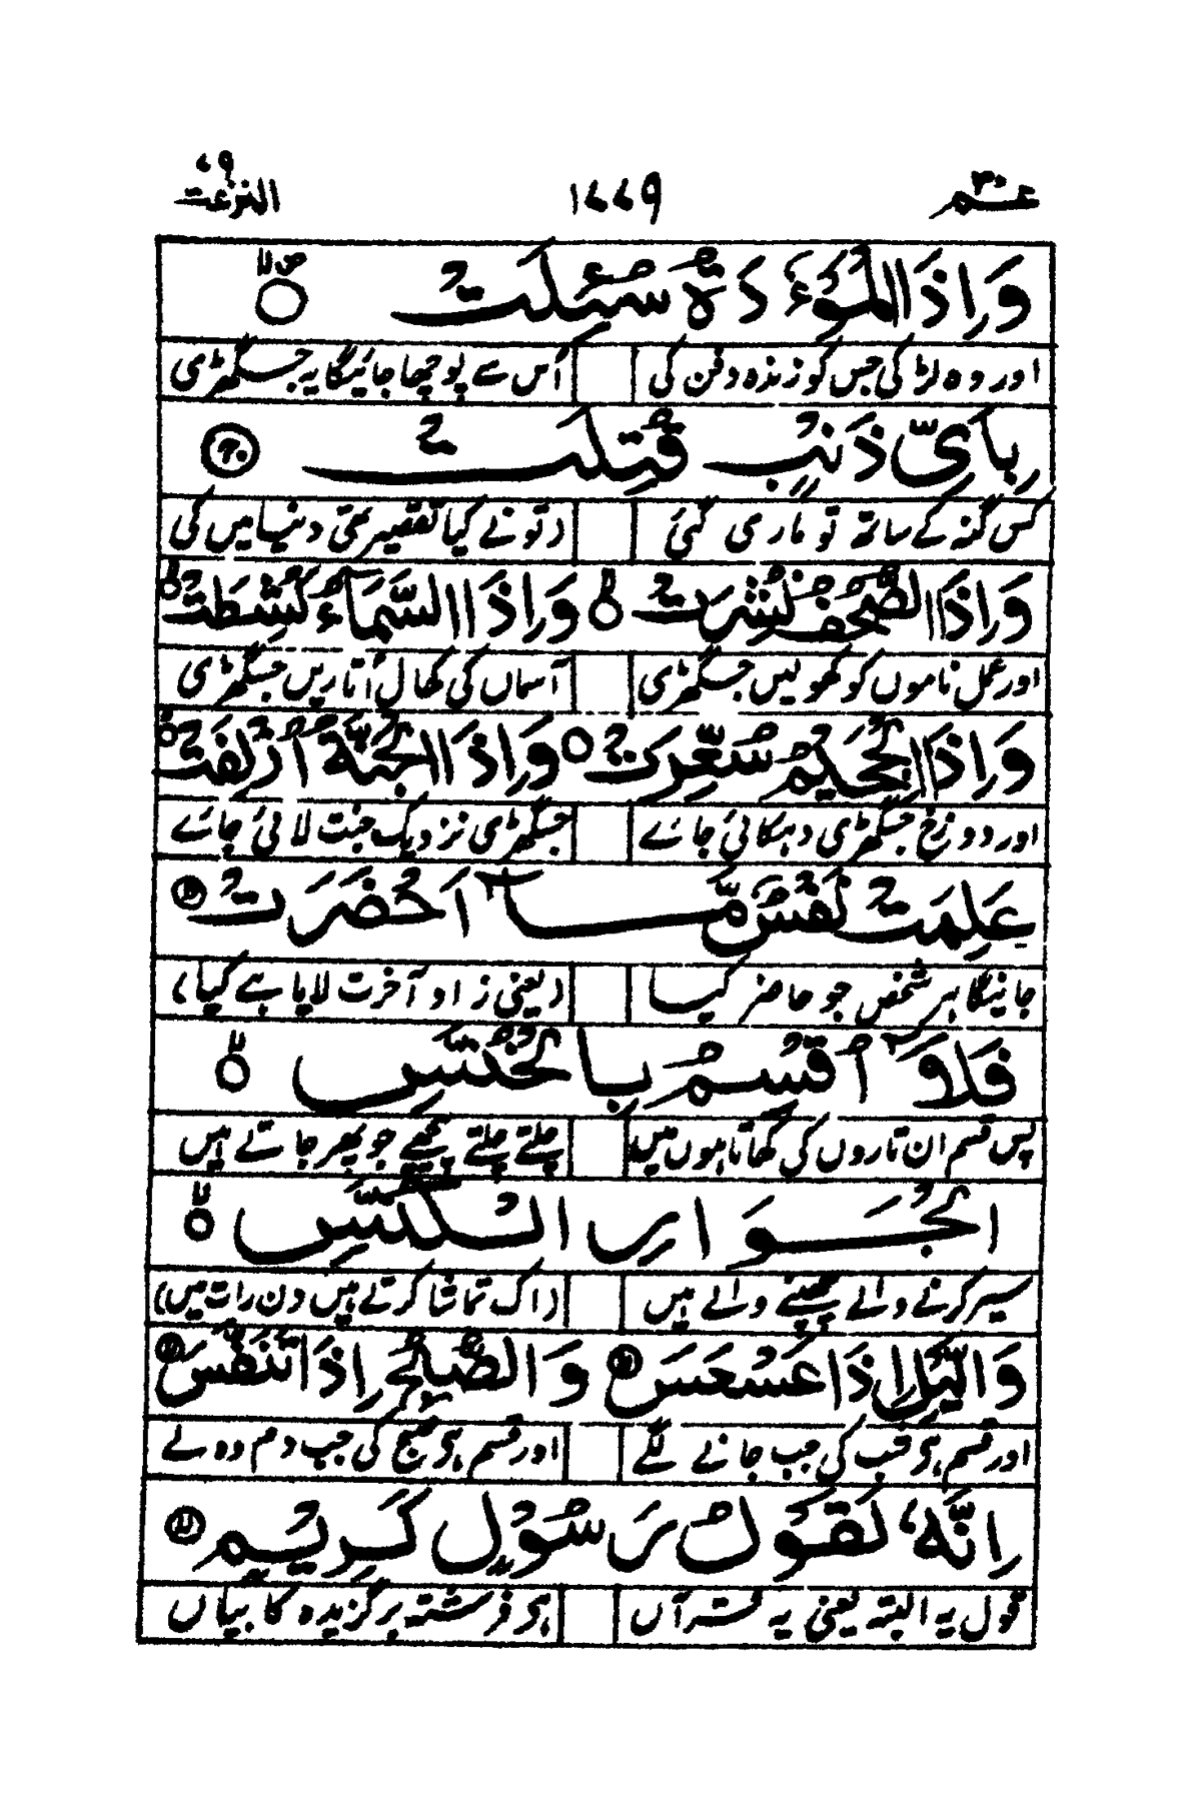 عـــم ۳۰ ۱۷۷۹ النٰزعٰت ۷۹
وَاِذَا الْمَوْءٗدَةُ سُئِلَتْ
اور وہ لڑکی جس کو زندہ دفن کی اُس سے پوچھا جائیگا یہ جس گھڑی
بِاَیِّ ذَنْۢبٍ قُتِلَتْ
کس گنہ کے ساتھ تو ماری گئی (تو نے کیا تقصیر تھی دنیا میں کی
وَاِذَا الصُّحُفُ نُشِرَتْ وَاِذَا السَّمَآءُ كُشِطَتْ
اور عمل ناموں کو کھولیں جس گھڑی آسماں کی کھال اُتاریں جس گھڑی
وَاِذَا الْجَحِيْمُ سُعِّرَتْ وَاِذَا الْجَنَّةُ اُزْلِفَتْ
اور دوزخ جس گھڑی دہکائی جائے جس گھڑی نزدیک جنت لائی جائے
عَلِمَتْ نَفْسٌ مَّآ اَحْضَرَتْ
جانیگا ہر شخص جو حاضر کیا (یعنی زادِ آخرت لایا ہے کیا)
فَلَآ اُقْسِمُ بِالْخُنَّسِ
پس قسم ان تاروں کی کھاتا ہوں میں چلتے چلتے پیچھے جو پھر جاتے ہیں
الْجَوَارِ الْكُنَّسِ
سیر کرنے والے چھپنے والے ہیں (اک تماشا کرتے ہیں دن رات میں)
وَالَّيْلِ اِذَا عَسْعَسَ وَالصُّبْحِ اِذَا تَنَفَّسَ
اور قسم ہی شب کی جب جانے لگے اور قسم ہی صبح کی جب دم وہ لے
اِنَّهٗ لَقَوْلُ رَسُوْلٍ كَرِيْمٍ
قول یہ البتہ یعنی یہ قرآں ہی فرشتہ برگزیدہ کا بیاں